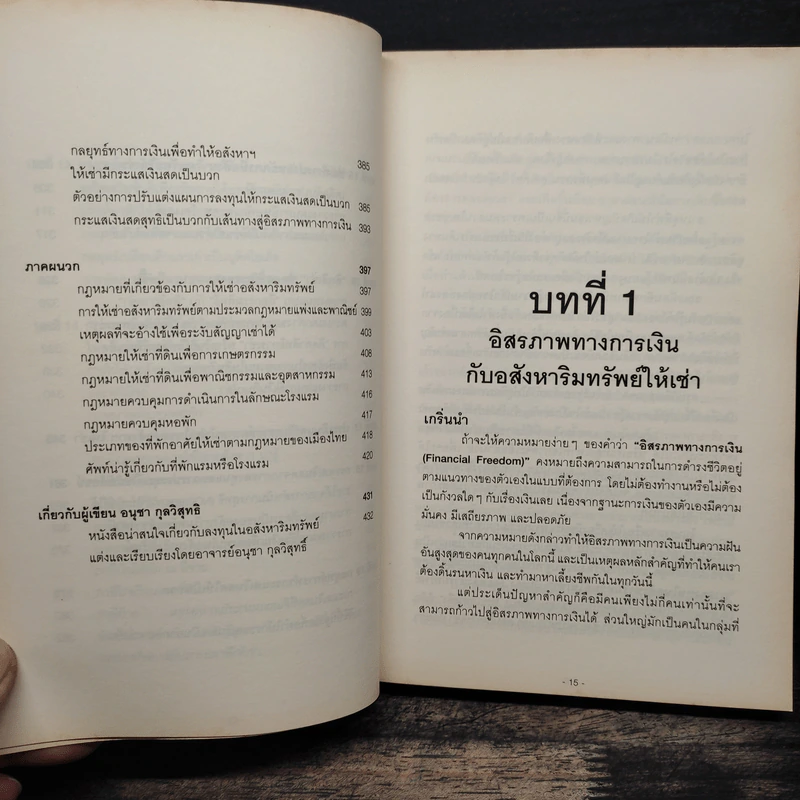 กลยุทธ์ทางการเงินเพื่อทำให้อสังหาฯ
ให้เช่ามีกระแสเงินสดเป็นบวก 385
ตัวอย่างการปรับแต่งแผนการลงทุนให้กระแสเงินสดเป็นบวก 385
กระแสเงินสดสุทธิเป็นบวกกับเส้นทางสู่อิสรภาพทางการเงิน 393
ภาคผนวก 397
กฎหมายที่เกี่ยวข้องกับการให้เช่าอสังหาริมทรัพย์ 397
การให้เช่าอสังหาริมทรัพย์ตามประมวลกฎหมายแพ่งและพาณิชย์ 399
เหตุผลที่จะอ้างใช้เพื่อระงับสัญญาเช่าได้ 403
กฎหมายให้เช่าที่ดินเพื่อการเกษตรกรรม 408
กฎหมายให้เช่าที่ดินเพื่อพาณิชกรรมและอุตสาหกรรม 413
กฎหมายควบคุมการดำเนินการในลักษณะโรงแรม 416
กฎหมายควบคุมหอพัก 417
ประเภทของที่พักอาศัยให้เช่าตามกฎหมายของเมืองไทย 418
ศัพท์น่ารู้เกี่ยวกับที่พักแรมหรือโรงแรม 420
เกี่ยวกับผู้เขียน อนุชา กุลวิสุทธิ์ 431
หนังสือน่าสนใจเกี่ยวกับลงทุนในอสังหาริมทรัพย์ 432
แต่งและเรียบเรียงโดยอาจารย์อนุชา กุลวิสุทธิ์
บทที่ 1
อิสรภาพทางการเงิน
กับอสังหาริมทรัพย์ให้เช่า
เกริ่นนำ
ถ้าจะให้ความหมายง่ายๆ ของคำว่า "อิสรภาพทางการเงิน
(Financial Freedom)" คงหมายถึงความสามารถในการดำรงชีวิตอยู่
ตามแนวทางของตัวเองในแบบที่ต้องการ โดยไม่ต้องทำงานหรือไม่ต้อง
เป็นกังวลใดๆ กับเรื่องเงินเลย เนื่องจากฐานะการเงินของตัวเองมีความ
มั่นคง มีเสถียรภาพ และปลอดภัย
จากความหมายดังกล่าวทำให้อิสรภาพทางการเงินเป็นความฝัน
อันสูงสุดของคนทุกคนในโลกนี้ และเป็นเหตุผลหลักสำคัญที่ทำให้คนเรา
ต้องดิ้นรนหาเงิน และทำมาหาเลี้ยงชีพกันในทุกวันนี้
แต่ประเด็นปัญหาสำคัญก็คือมีคนเพียงไม่กี่คนเท่านั้นที่จะ
สามารถก้าวไปสู่อิสรภาพทางการเงินได้ ส่วนใหญ่มักเป็นคนในกลุ่มที่
- 15 -